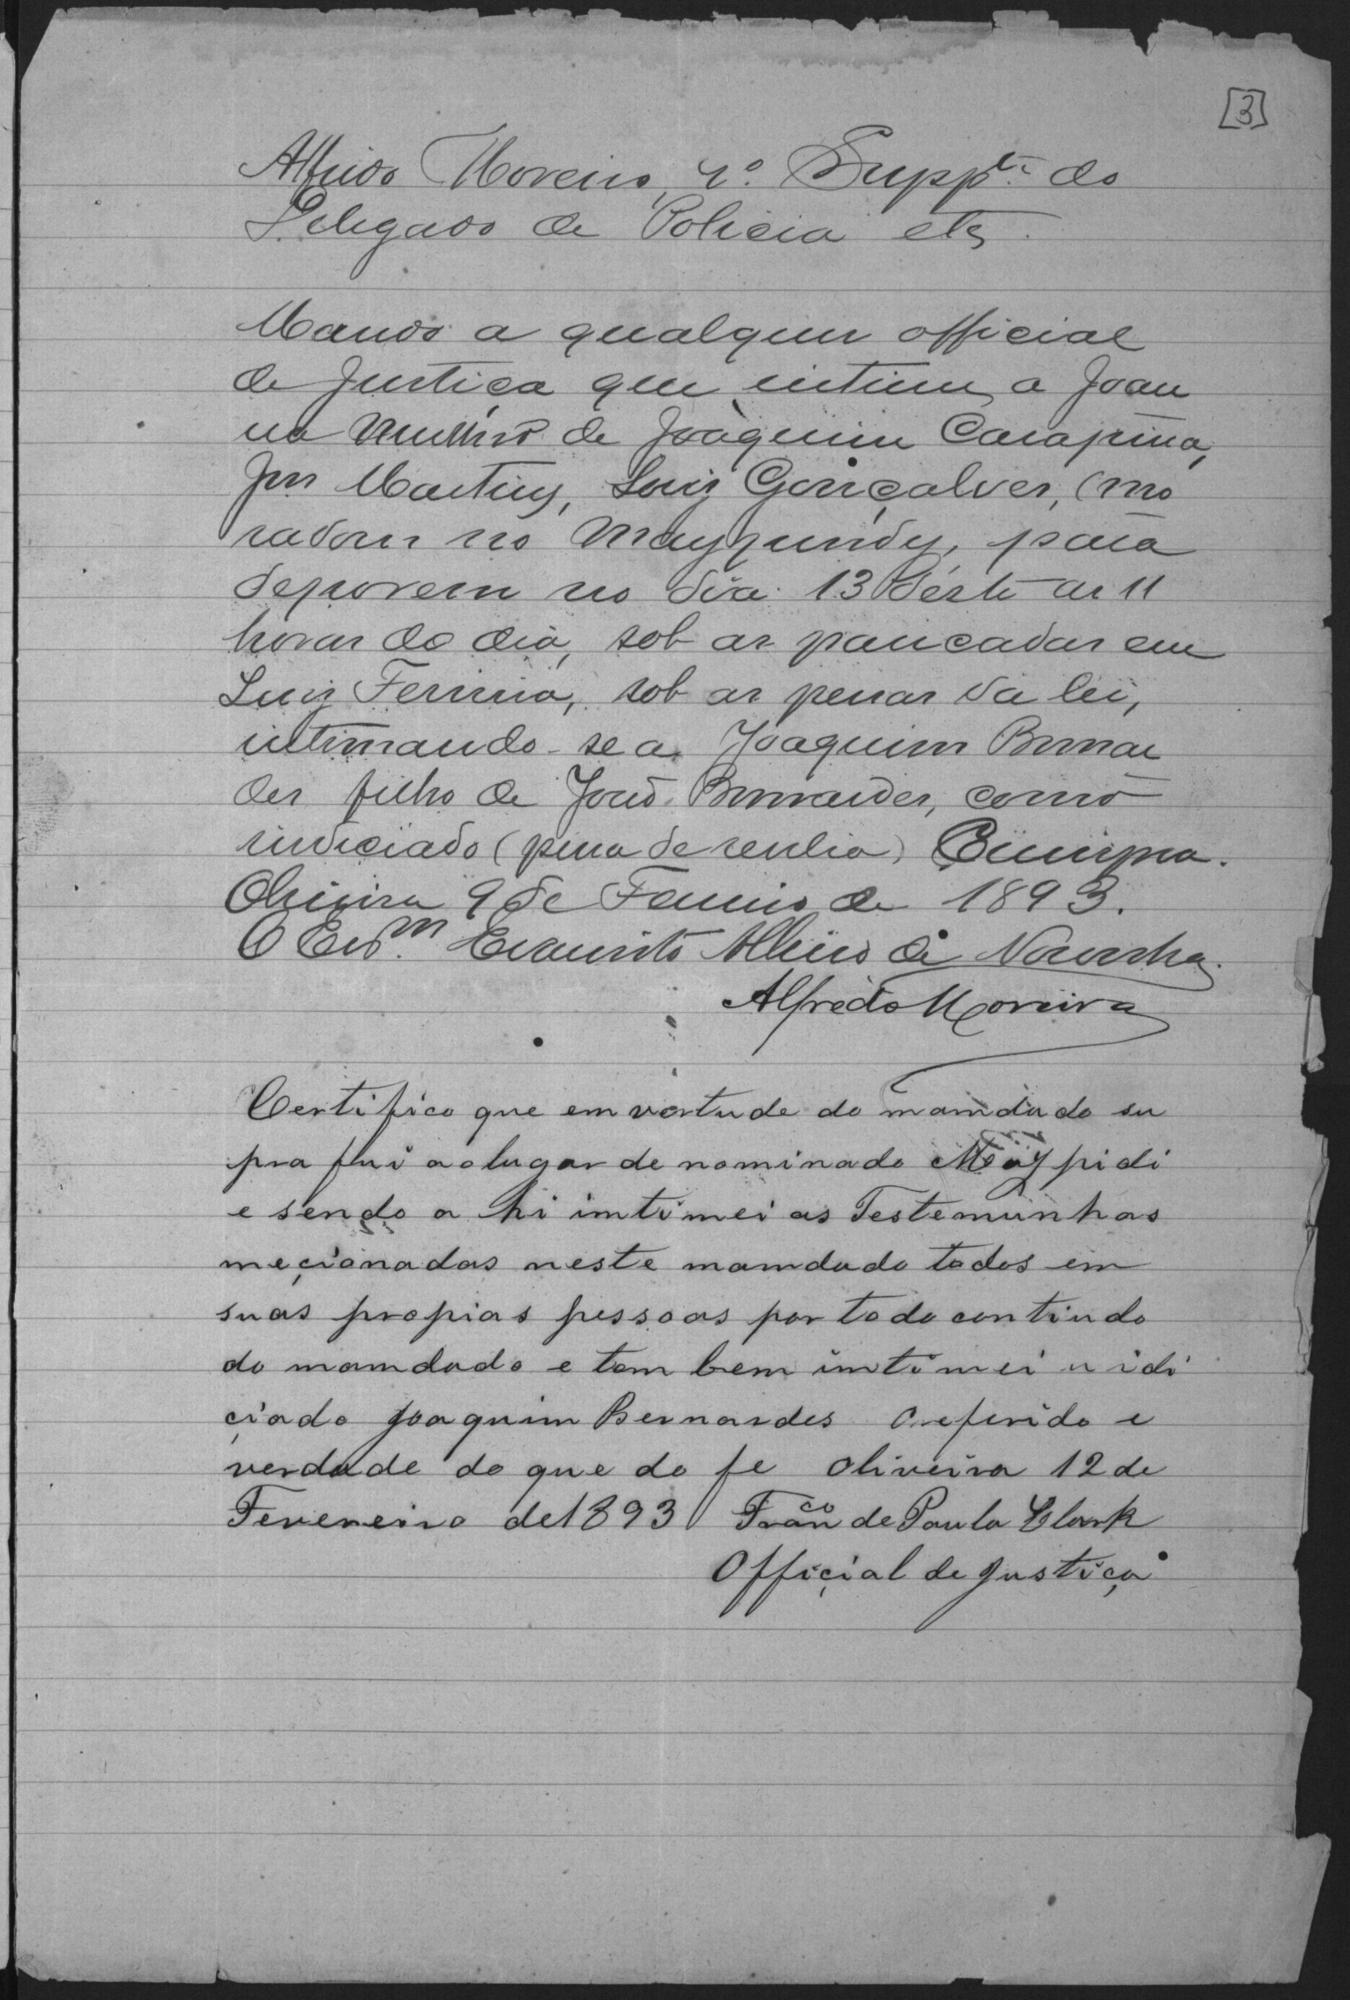 [3]
Alfredo Moreira, 1º Suppte do
Delegado de Policia etc.
Mando a qualquer official
de Justiça que intime a Joan
na mulher de Joaquim Carapina,
José Martins, Luiz Gonçalves, (mo
radores no para
deporem no dia 13 d'este as 11
horas do dia, sob as pancadas em
Luiz Ferreira, sob as penas da lei,
intimando-se a Joaquim Bernar
des filho de João Bernardes, como
indiciado (pena de revelia) Cumpra.
Oliveira 9 de Fevereiro de 1893.
O Escm Albino de Noronha.
Alfredo Moreira
Certifico que em vertude do mamdado su
pra fui ao lugar de nominado Maypidi
e sendo a hi imtimei as Testemunhas
meçionadas neste mamdado todos em
suas propias pessoas por todo contiudo
do mamdado e tam bem imtimei u idi
çiado Joaquim Bernardes O referido e
verdade do que do fe Oliveira 12 de
Fevereiro de 1893 Franco de Paula Clark
Offiçial de Justiça